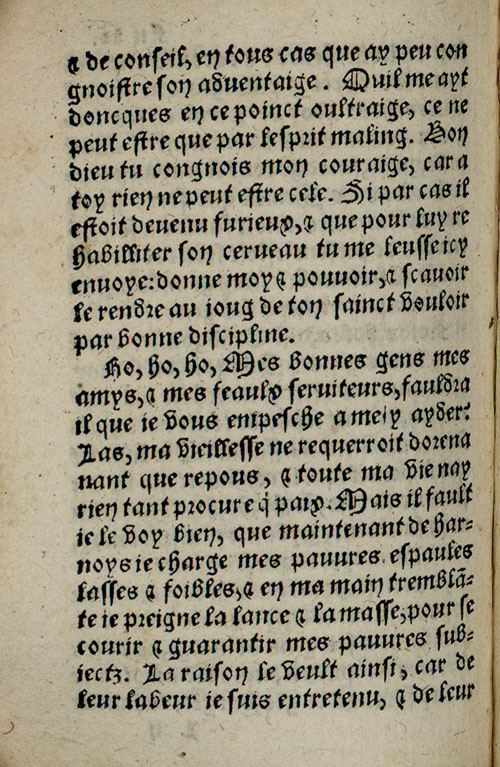 ⁊ de conseil, en tous cas que ay peu con
gnoistre son aduentaige. Quil me ayt
doncques en ce poinct oultraige, ce ne
peut estre que par lesprit maling. Bon
dieu tu congnois mon couraige, car a
toy rien ne peut estre cele. Si par cas il
estoit deuenu furieux, ⁊ que pour luy re
habilliter son cerueau tu me leusse icy
enuoye: donne moy ⁊ pouuoir, ⁊ scauoir
le rendre au ioug de ton sainct vouloir
par bonne discipline.
Ho, ho, ho, Mes bonnes gens mes
amys, ⁊ mes feaulx seruiteurs, fauldra
il que ie vous empesche a mely ayder?
Las, ma vieillesse ne requerroit dorena
nant que repous, ⁊ toute ma vie nay
rien tant procure q̃ paix. Mais il fault
ie le voy bien, que maintenant de har-
noys ie charge mes pauures espaules
lasses ⁊ foibles, ⁊ en ma main tremblã-
te ie preigne la lance ⁊ la masse, pour se
courir ⁊ guarantir mes pauures sub-
iectz. La raison le veult ainsi, car de
leur labeur ie suis entretenu, ⁊ de leur